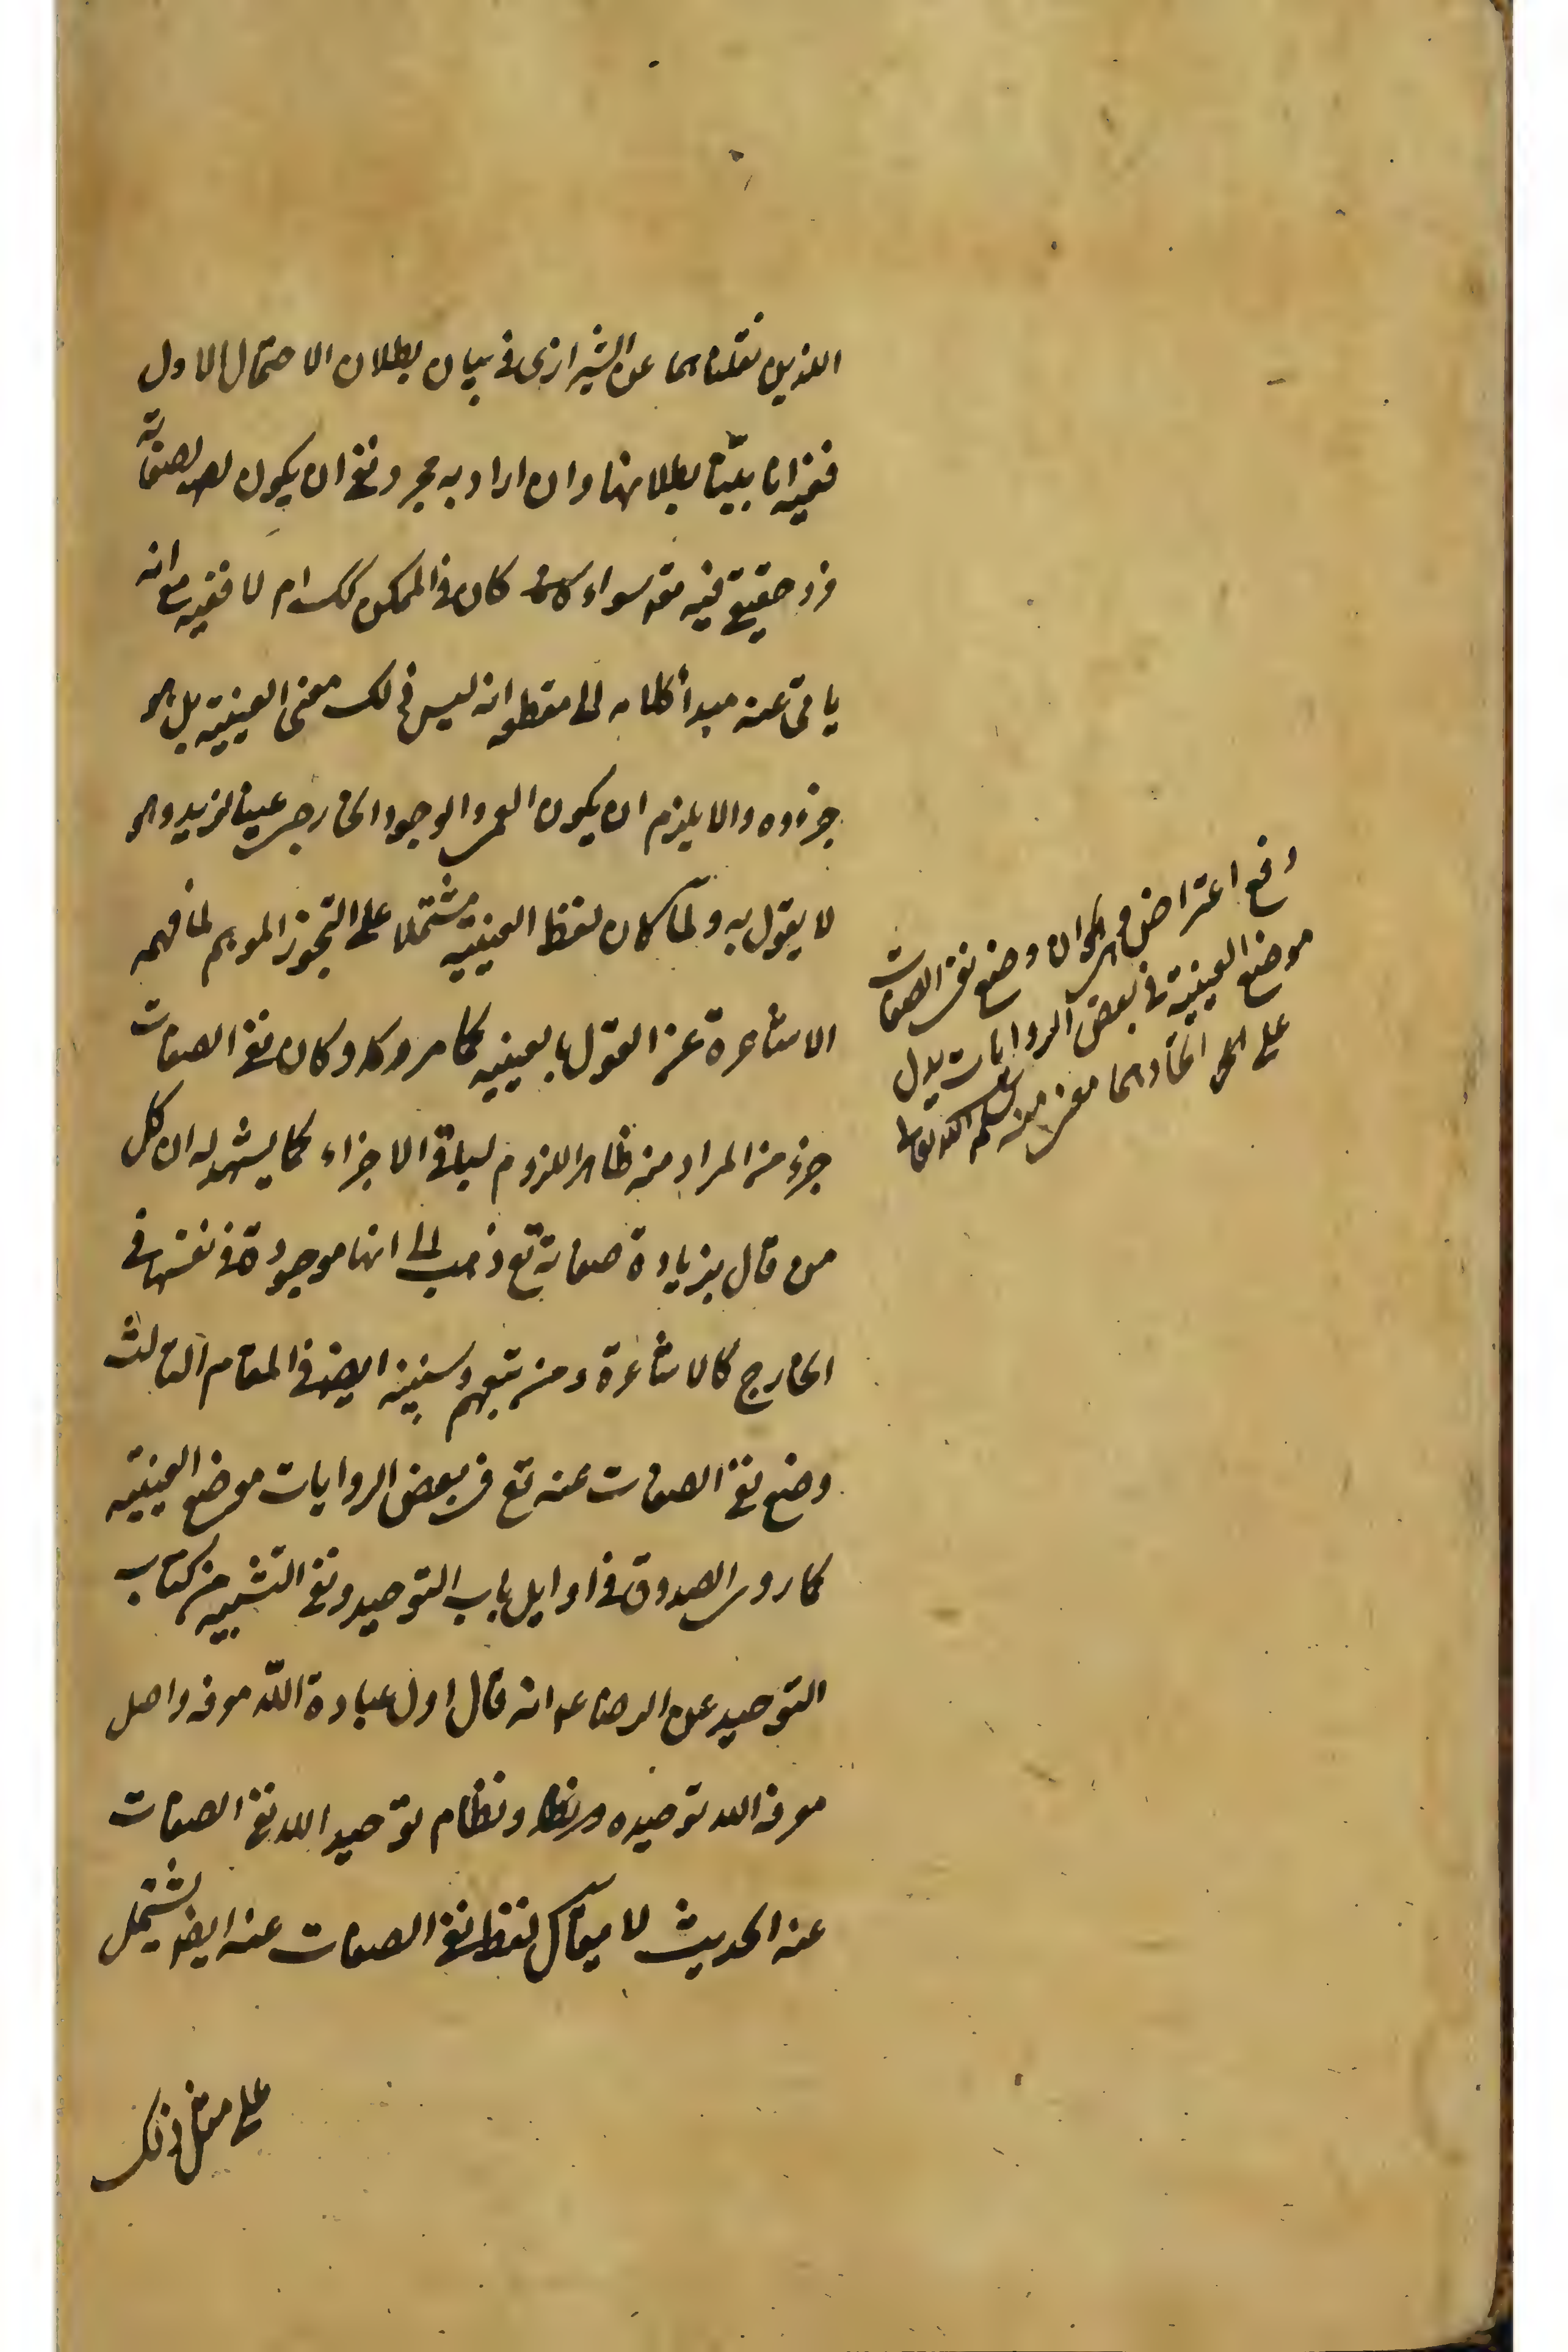 اللذين نقلناهما عن الشيرازى فى بيان بطلان الاحتمال الاول
ففيه انا بيّنّا بطلانها وان اراد به مجرد نفى ان يكون لصفاته
فرد حقيقى فيه تعه سواء كان فى الممكن كك ام لا ففيه مع انه
يابى عنه مبدأ كلامه الى مقطعه انه ليس ذلك معنى العينية بل هو
جزؤه والا يلزم ان يكون العمى والوجود الخارجى عينا لزيد وهو
لا يقول به ولما كان لفظ العينية مشتملا على التجوز الموهم لما فهمه
الاشاعرة عن القول بالعينيه كما مر وكان نفى الصفات
جزء من المراد منه ظاهر اللزوم لباقى الاجزاء كما يشهد له ان كل
من قال بزيادة صفاته تع ذهب الى انها موجودة فى نفسها فى
الخارج كالاشاعرة ومن تبعهم وسنبينه ايضا فى المقام الثالث
وضع نفى الصفات عنه تع فى بعض الروايات موضع العينيه
كما روى الصدوق فى اوايل باب التوحيد ونفى التشبيه من كتاب
التوحيد عن الرضا ع انه قال اول عبادة اللّه معرفته واصل
معرفة الله توحيده ونظام توحيد الله نفى الصفات
عنه الحديث لا يقال لفظ نفى الصفات عنه ايضا يشتمل
على مثل ذلك
دفع اعتراض وهو ان وضع نفى الصفات
موضع العينية فى بعض الروايات يدل
على اتحادهما معنى منه سلمه الله تعالى